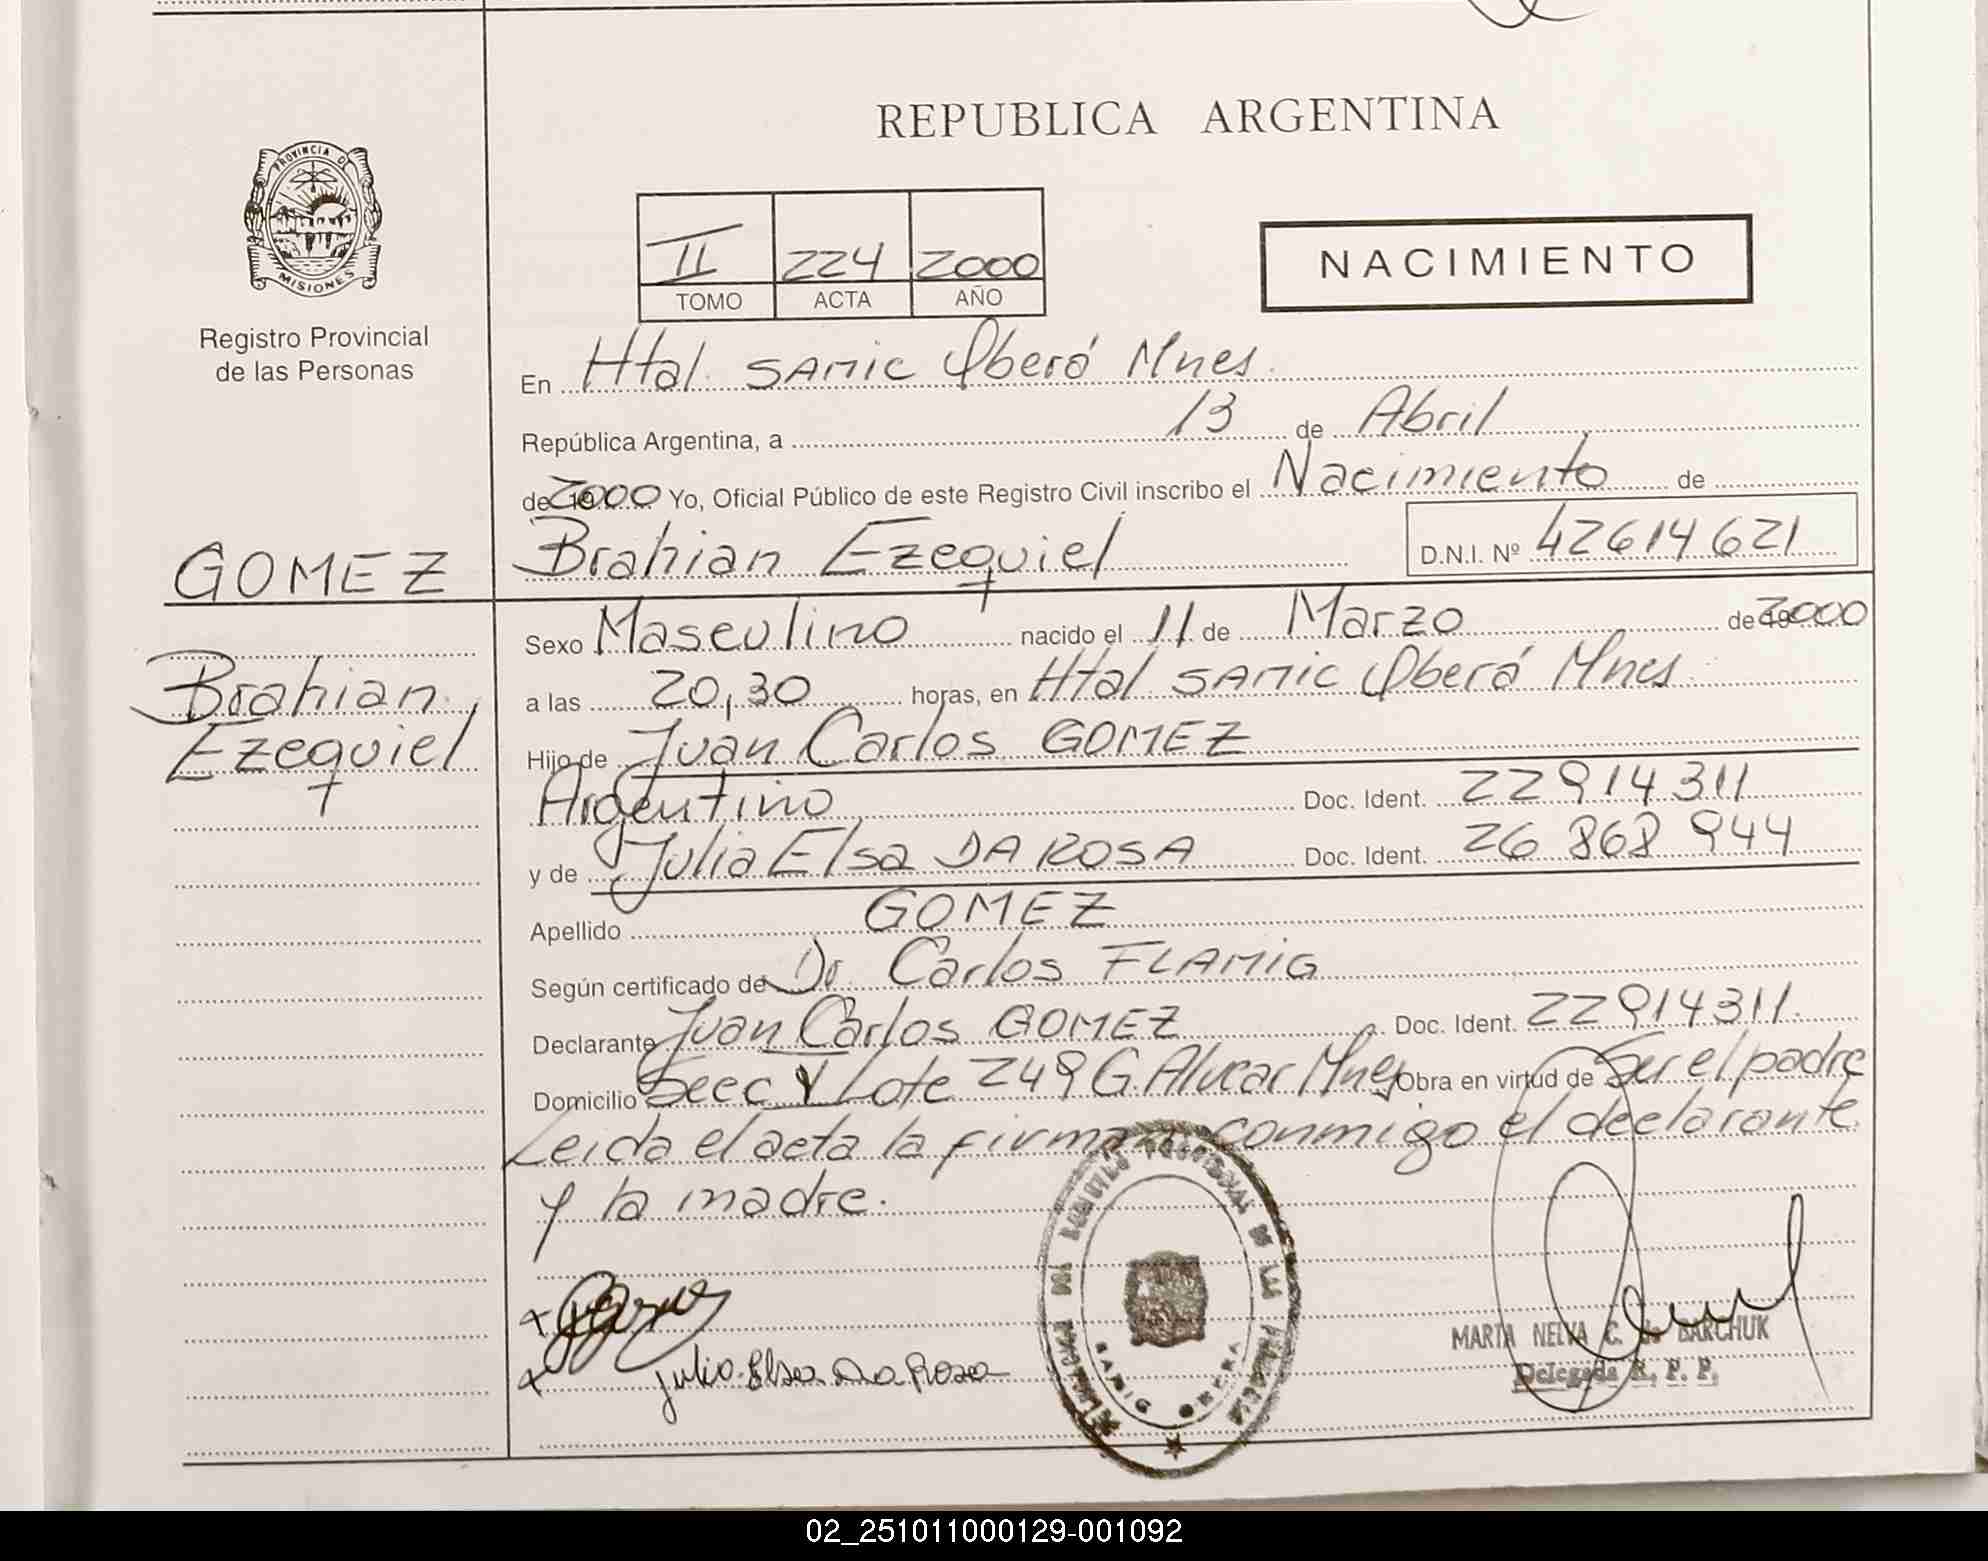 REPUBLICA ARGENTINA
PROVINCIA DE
MISIONES
Registro Provincial
de las Personas
II 224 2000
TOMO ACTA AÑO
NACIMIENTO
En Htal. SAMIC Oberá Mnes.
República Argentina, a 13 de Abril
de 2000 Yo, Oficial Público de este Registro Civil inscribo el Nacimiento de
GOMEZ
Brahian Ezequiel
D.N.I. Nº 42614621
Brahian
Ezequiel
Sexo Masculino nacido el 11 de Marzo de 2000
a las 20,30 horas, en Htal. SAMIC Oberá Mnes.
Hijo de Juan Carlos GOMEZ
Argentino Doc. Ident. 22914311
y de Julia Elsa DA ROSA Doc. Ident. 26 868 944
Apellido GOMEZ
Según certificado de Dr. Carlos FLAMIG
Declarante Juan Carlos GOMEZ Doc. Ident. 22914311.
Domicilio Secc Y Lote 249 G. Alvear Mnes Obra en virtud de Ser el padre
Leida el acta la firman conmigo el declarante
y la madre.
Julia Elsa Da Rosa
SAMIC OBERA
MARTA NELVA C. de BARCHUK
Delegada R. P. P.
02_251011000129-001092